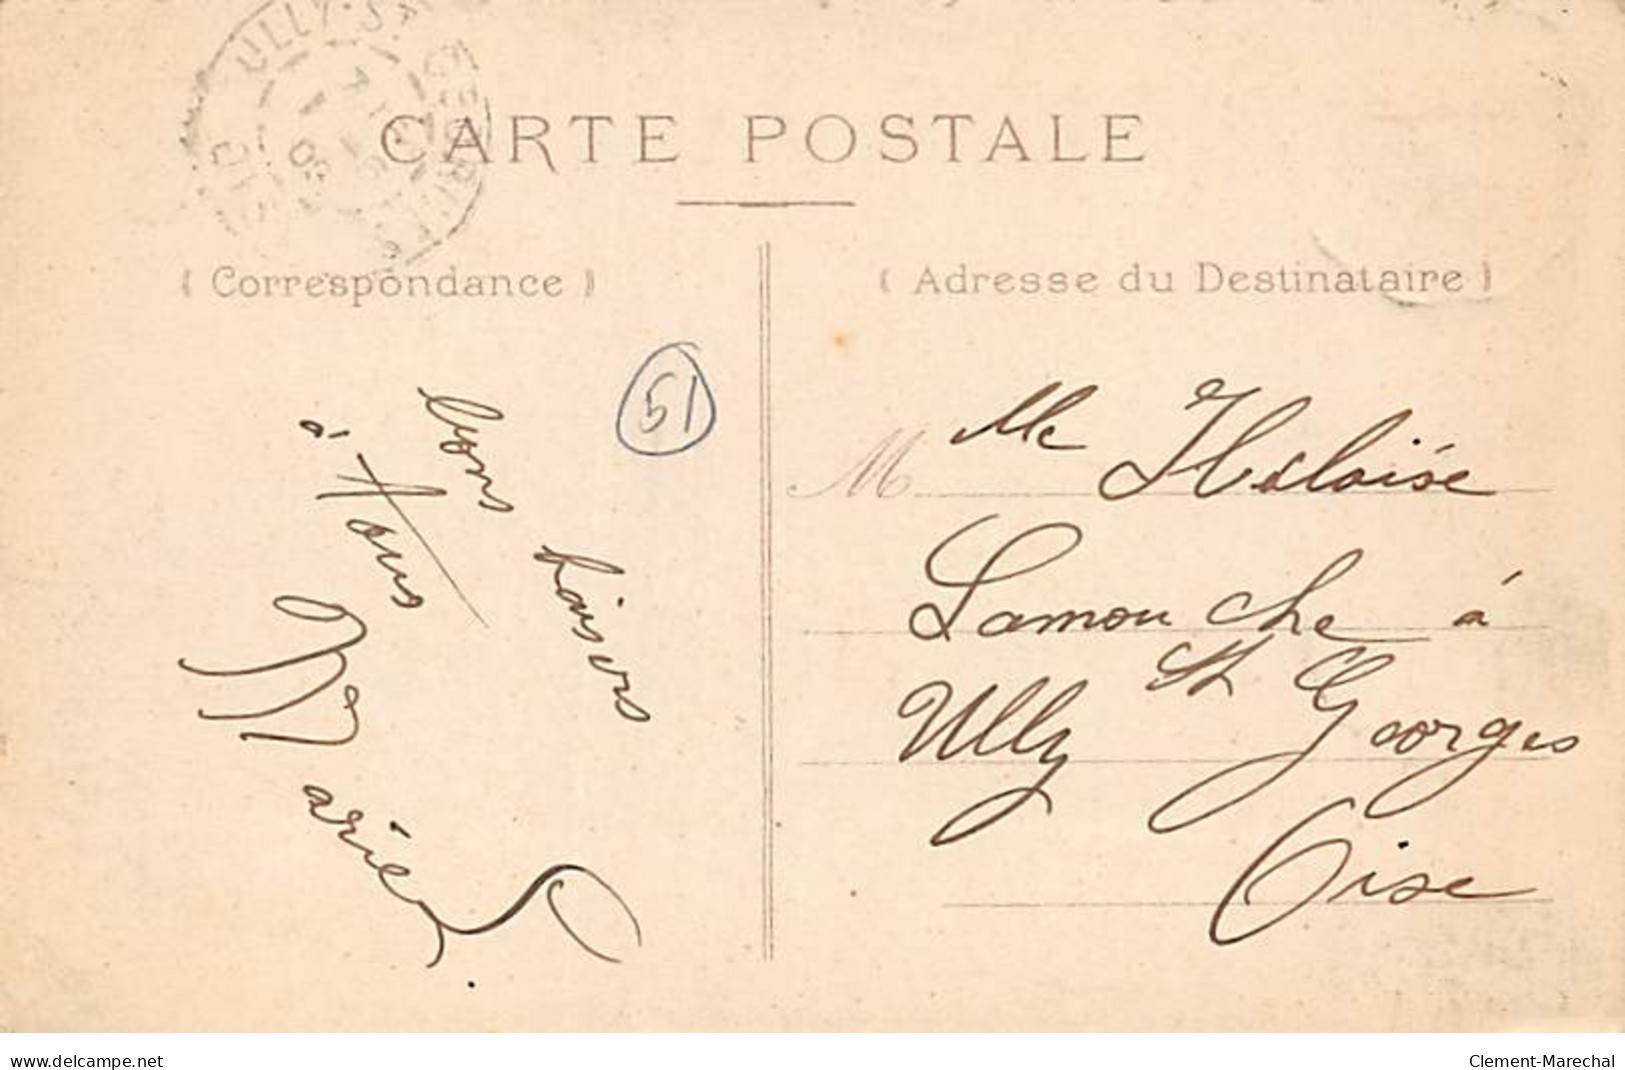 ULLY-ST GEORGES
CARTE POSTALE
( Correspondance )
( Adresse du Destinataire )
51
bons baisers
à tous
Marie
M Mlle Héloïse
Lamouche à
Ully St Georges
Oise
www.delcampe.net
Clement-Marechal